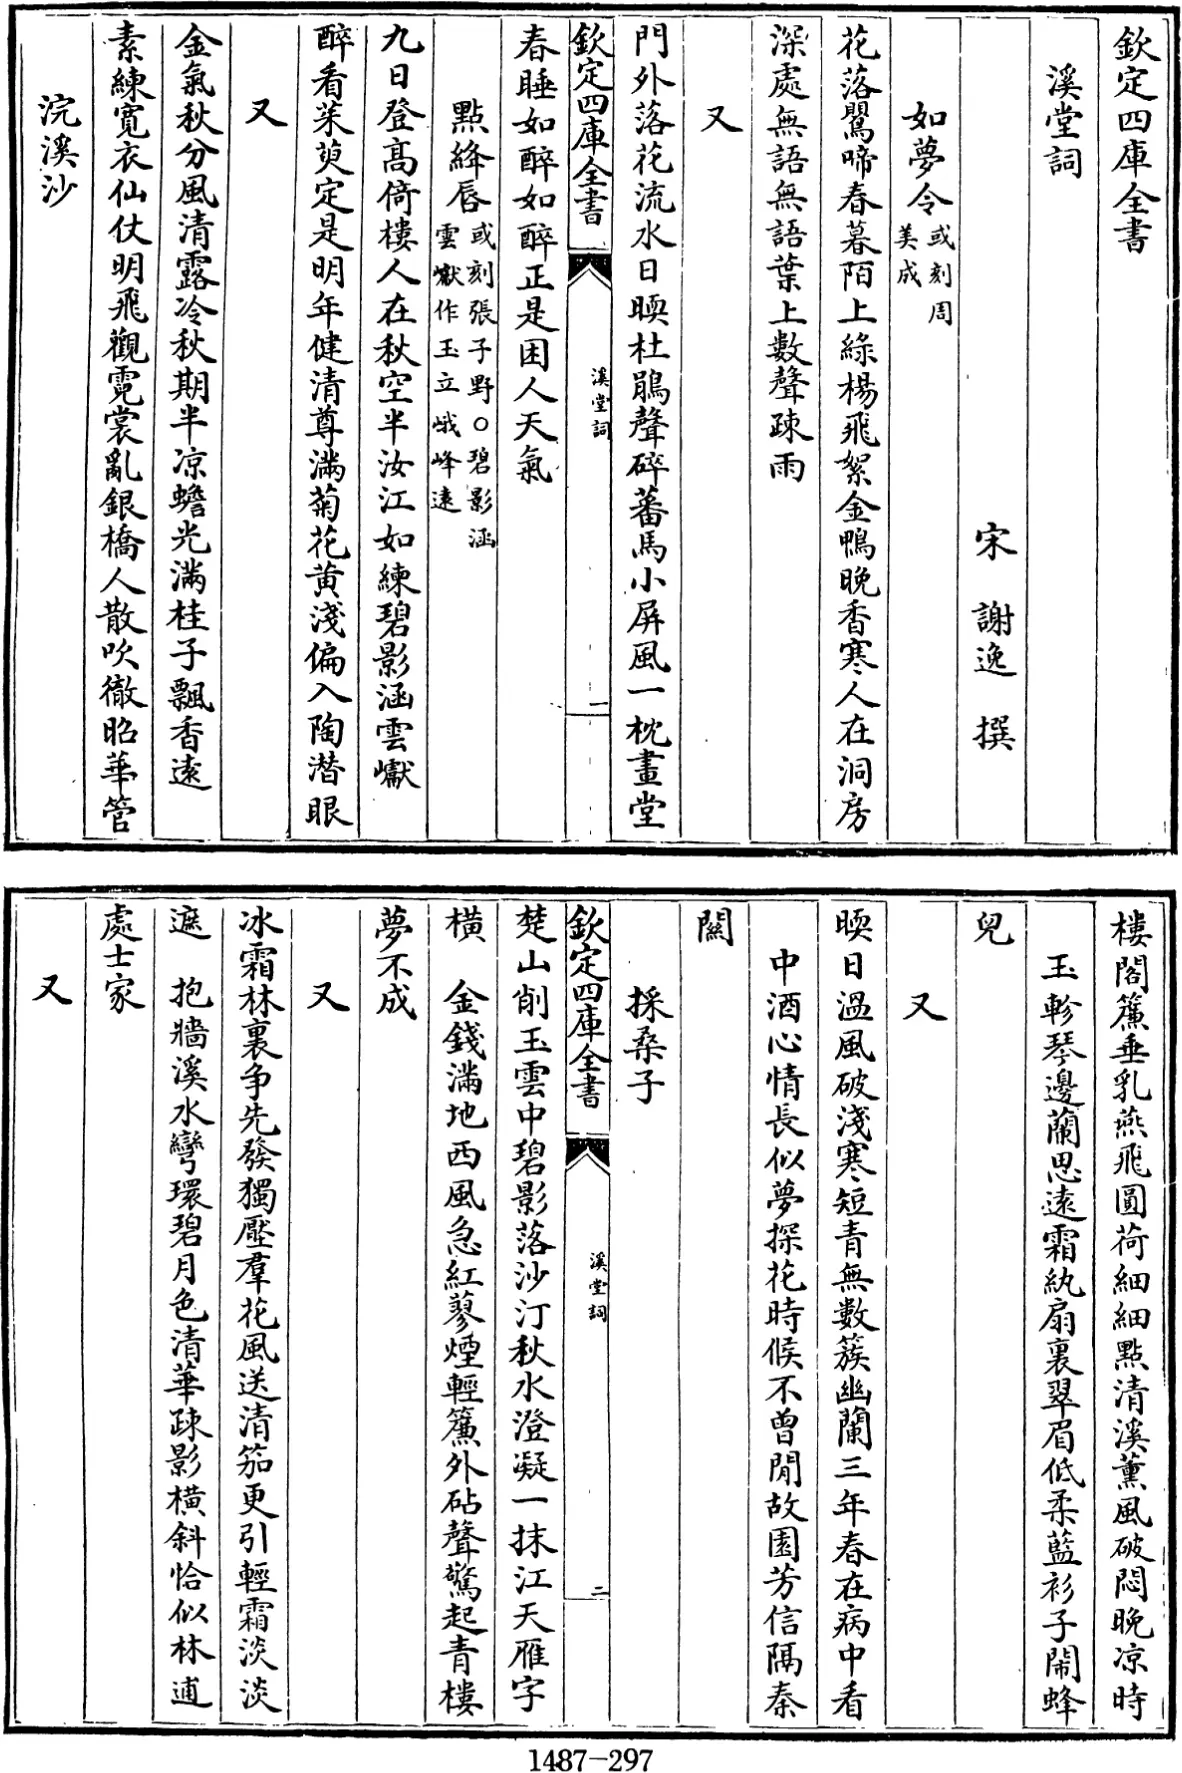 欽定四庫全書
溪堂詞
宋　謝逸　撰
如夢令或刻周
美成
花落鶯啼春暮陌上綠楊飛絮金鴨晚香寒人在洞房
深處無語無語葉上數聲疎雨
又
門外落花流水日暖杜鵑聲碎蕃馬小屏風一枕畫堂
欽定四庫全書
溪堂詞
一
春睡如醉如醉正是困人天氣
點絳唇或刻張子野〇碧影涵
雲巘作玉立峨峰遠
九日登高倚樓人在秋空半汝江如練碧影涵雲巘
醉看茱萸定是明年健清尊滿菊花黄淺偏入陶潜眼
又
金氣秋分風清露冷秋期半凉蟾光滿桂子飄香遠
素練寛衣仙仗明飛觀霓裳亂銀橋人散吹徹昭華管
浣溪沙
樓閣簾垂乳燕飛圓荷細細點清溪薰風破悶晚凉時
玉軫琴邊蘭思遠霜紈扇裏翠眉低柔藍衫子鬧蜂
兒
又
暖日溫風破淺寒短青無數簇幽蘭三年春在病中看
中酒心情長似夢探花時候不曾閒故園芳信隔秦
關
採桑子
欽定四庫全書
溪堂詞
二
楚山削玉雲中碧影落沙汀秋水澄凝一抹江天雁字
横　金錢滿地西風急紅蓼煙輕簾外砧聲驚起青樓
夢不成
又
冰霜林裏争先發獨壓羣花風送清笳更引輕霜淡淡
遮　抱牆溪水彎環碧月色清華疎影横斜恰似林逋
處士家
又
1487-297